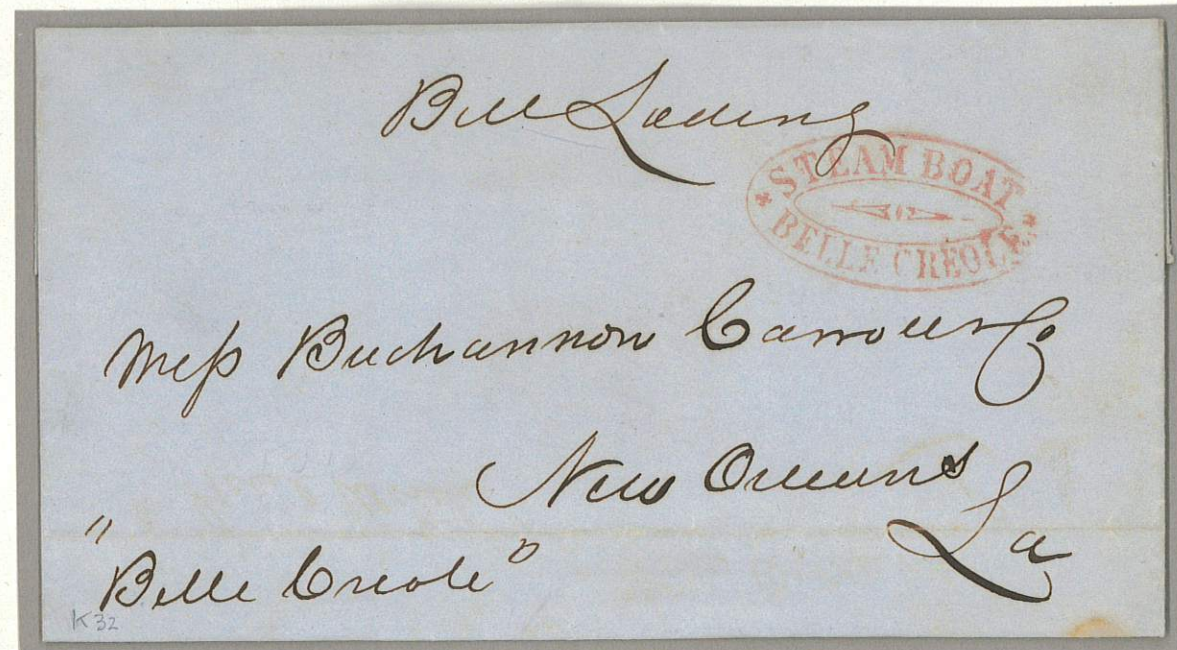 Bill Lading
STEAM BOAT
BELLE CRÉOLE
Mess Buchannon Carroll & Co
New Orleans
La
"Belle Creole"
K32